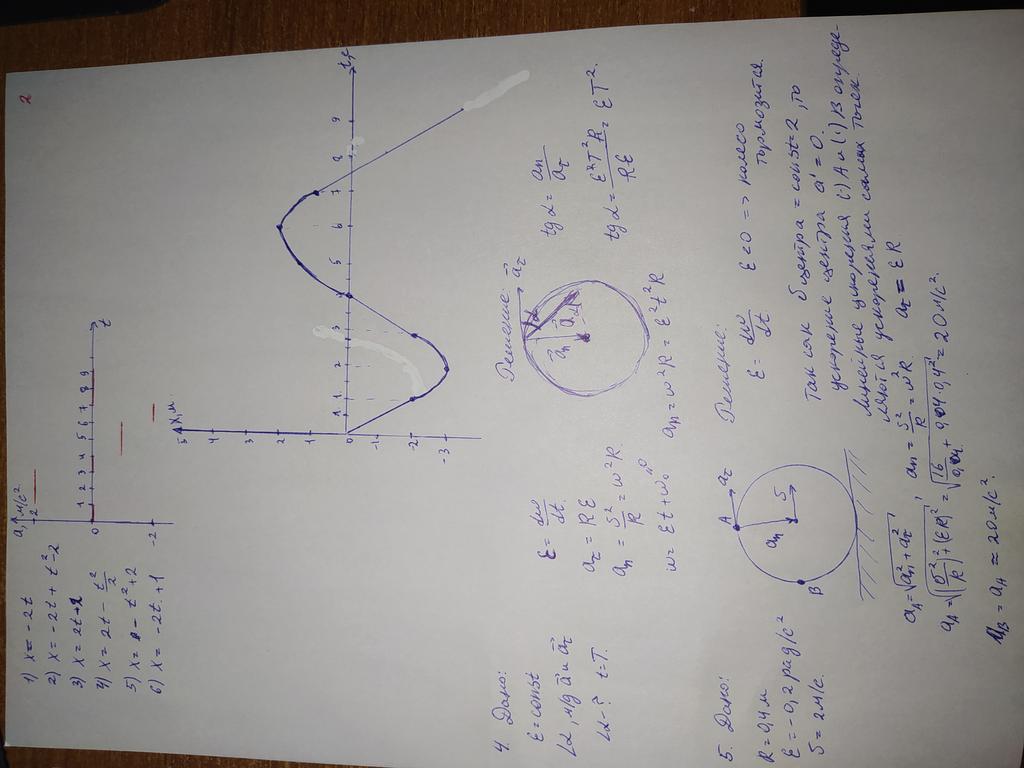 2
1) x = -2t
2) x = -2t + t² - 2
3) x = 2t + 2
4) x = 2t - t²/2
5) x = - t² + 2
6) x = -2t + 1
a, м/с²
2
0
-2
1 2 3 4 5 6 7 8 9
t
x, м
5
4
3
2
1
0
-1
-2
-3
1 2 3 4 5 6 7 8 9
4. Дано:
ε = const
∠α, м/д a⃗ и a⃗τ
∠α - ? t = T.
ε = dω/dt
aτ = Rε
an = v²/R = ω²R
ω = εt + ω₀
Решение:
a⃗τ
a⃗n
a⃗
an = ω²R = ε²t²R
tg α = an/aτ
tg α = ε²T²R/Rε = εT².
5. Дано:
R = 0,4 м
ε = -0,2 рад/с²
v = 2 м/с.
A
B
aτ
an
v
Решение:
ε = dω/dt ε < 0 => колесо
тормозится.
Так как vцентра = const = 2, то
ускорение центра a' = 0.
Линейные ускорения (·) A и (·) B опреде-
ляются ускорениями самих точек.
aA = √(an² + aτ²), an = v²/R = ω²R aτ = εR
aA = √((v²/R)² + (εR)²) = √(16/0,04 + 0,04·0,4²) = 20 м/с².
aB = aA ≈ 20 м/с².